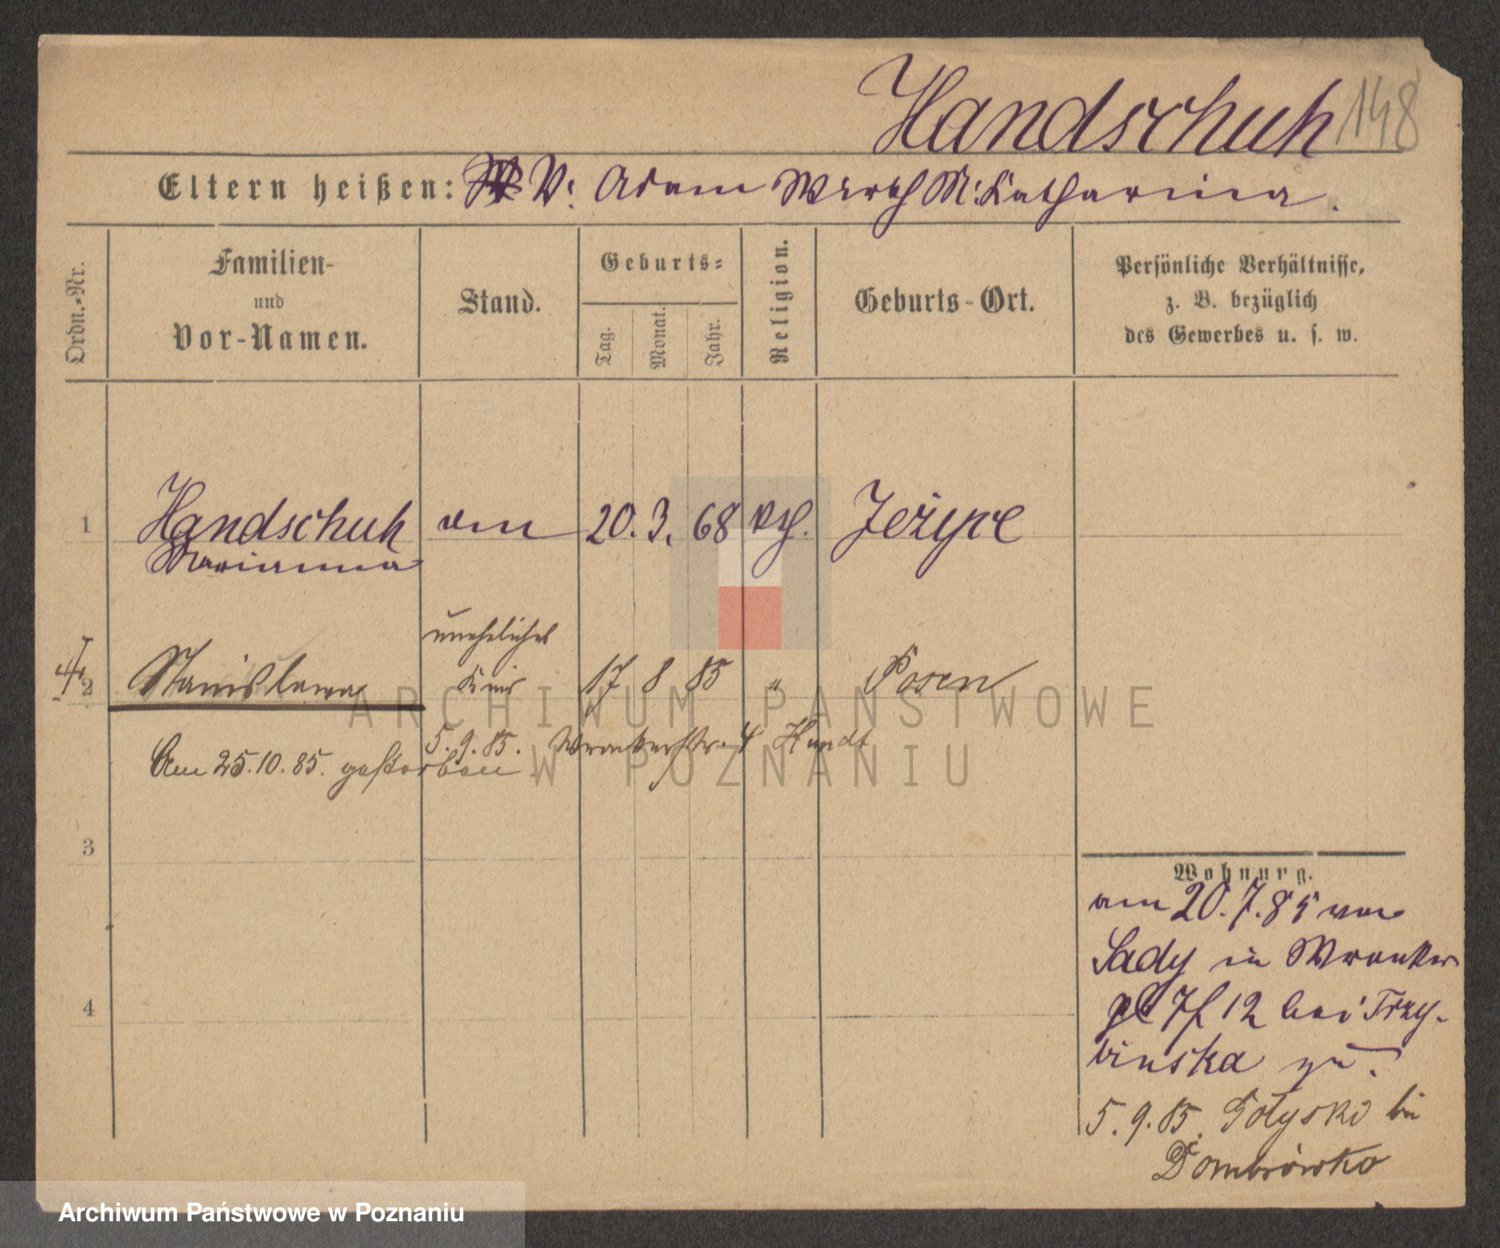 Handschuh 148
Eltern heißen: V: Adam Wirth M: Katharina.
Ordn.-Nr.
Familien-
und
Vor-Namen.
Stand.
Geburts-
Tag.
Monat.
Jahr.
Religion.
Geburts-Ort.
Persönliche Verhältnisse,
z. B. bezüglich
des Gewerbes u. s. w.
1 Handschuh 20. 3. 68 kth.
Marianna
uneheliches
2 Stanislawa Kind 17 8 85 " Posen
5. 9. 85. Wronkerstr. 4
Am 25.10.85. gestorben
3
4
Wohnung.
am 20.7.85 von
Sady in Wronker
12 bei Trzy-
binska zu.
5. 9. 85. bei
Dombrowko
ARCHIWUM PAŃSTWOWE
W POZNANIU
Archiwum Państwowe w Poznaniu